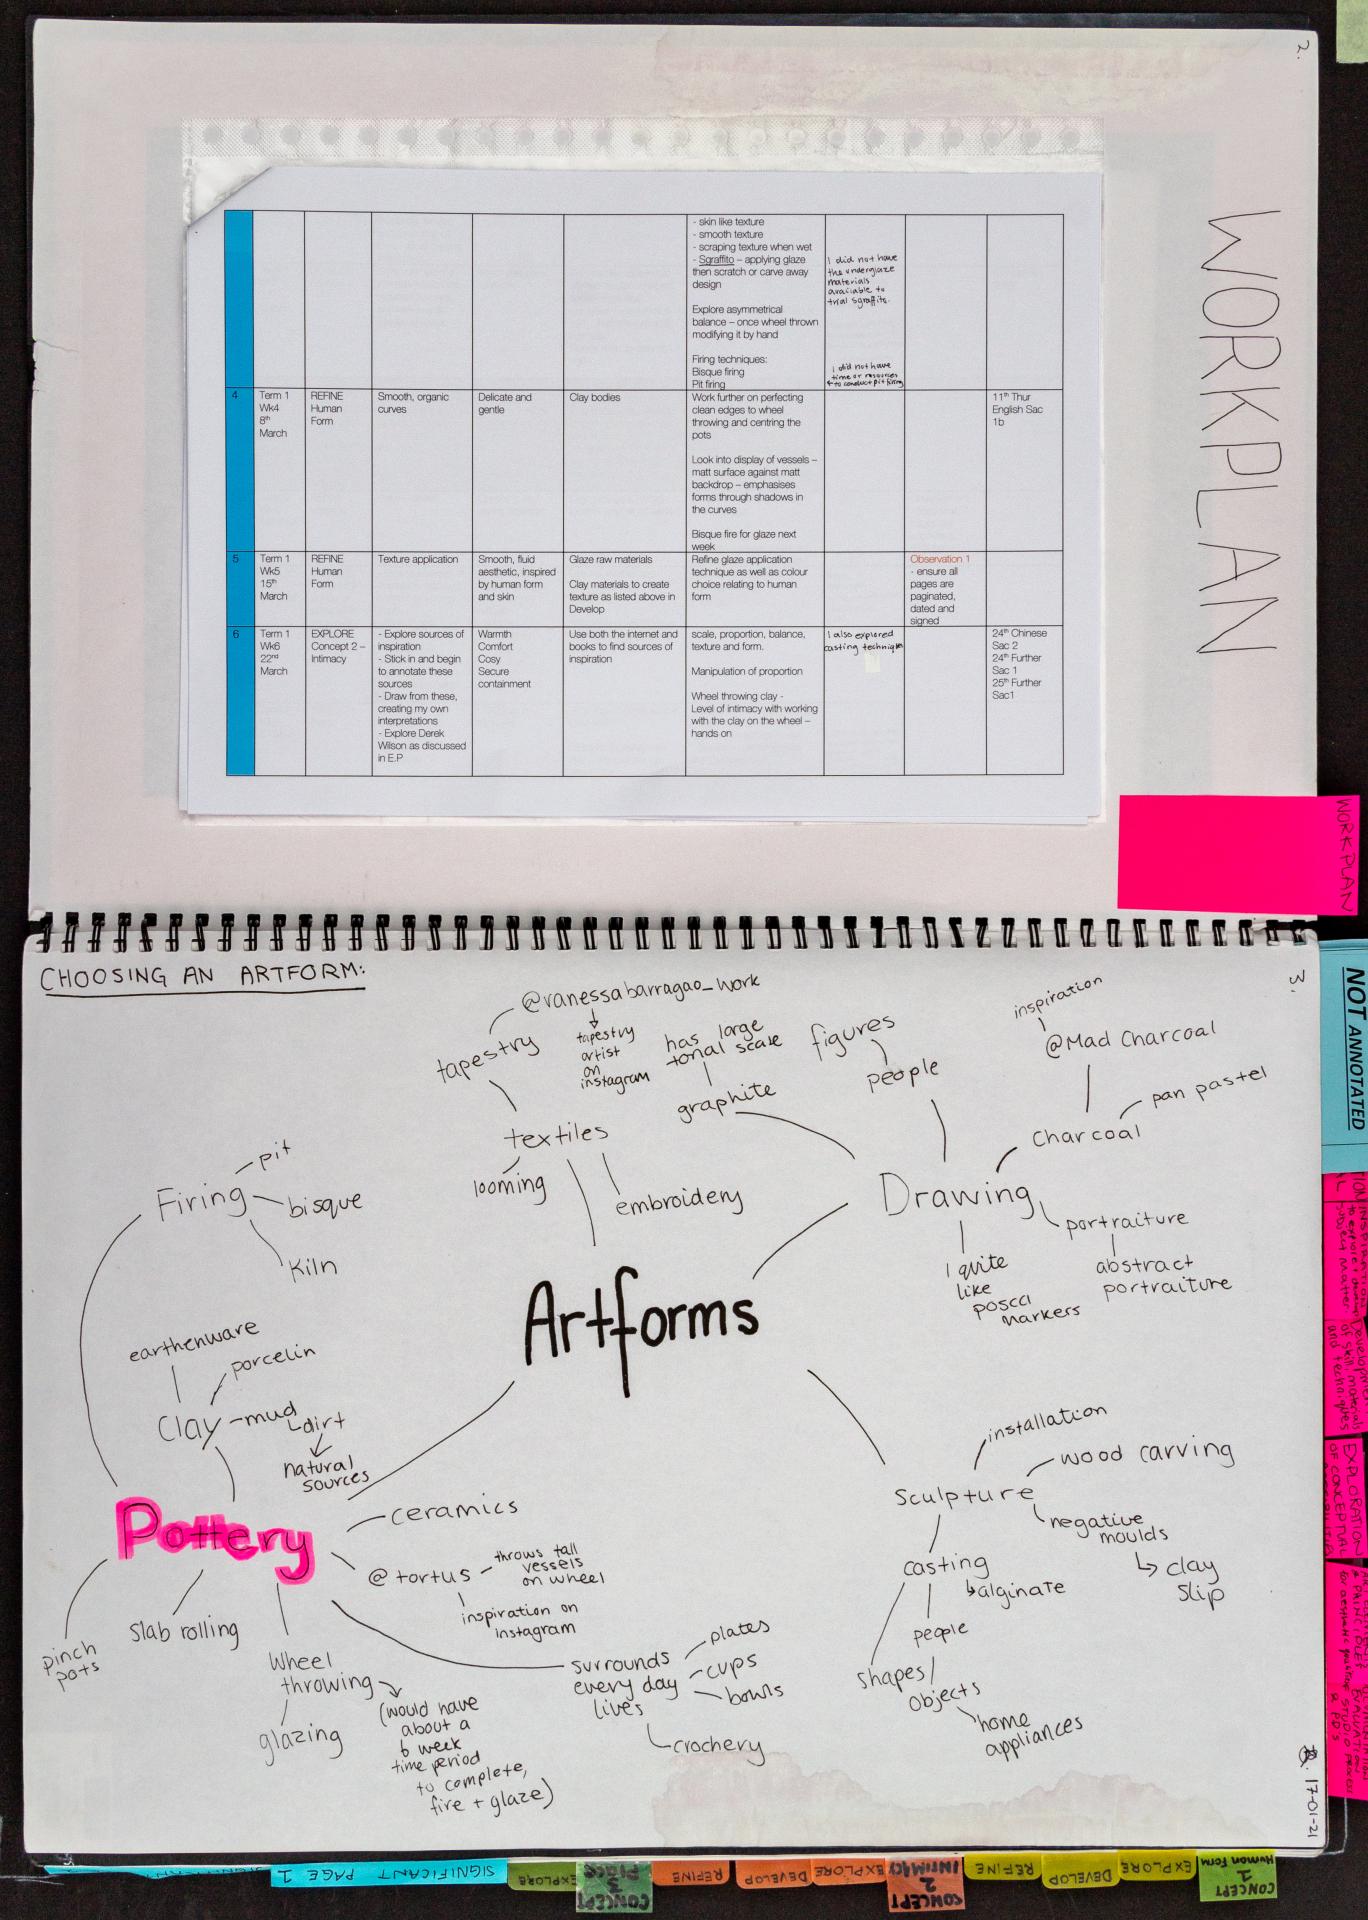 2.
WORKPLAN
- skin like texture
- smooth texture
- scraping texture when wet
- Sgraffito – applying glaze
then scratch or carve away
design
Explore asymmetrical
balance – once wheel thrown
modifying it by hand
Firing techniques:
Bisque firing
Pit firing
I did not have
the underglaze
materials
available to
trial sgraffito.
I did not have
time or resources
to conduct pit firing
4
Term 1
Wk4
8th
March
REFINE
Human
Form
Smooth, organic
curves
Delicate and
gentle
Clay bodies
Work further on perfecting
clean edges to wheel
throwing and centring the
pots
Look into display of vessels –
matt surface against matt
backdrop – emphasises
forms through shadows in
the curves
Bisque fire for glaze next
week
11th Thur
English Sac
1b
5
Term 1
Wk5
15th
March
REFINE
Human
Form
Texture application
Smooth, fluid
aesthetic, inspired
by human form
and skin
Glaze raw materials
Clay materials to create
texture as listed above in
Develop
Refine glaze application
technique as well as colour
choice relating to human
form
Observation 1
- ensure all
pages are
paginated,
dated and
signed
6
Term 1
Wk6
22nd
March
EXPLORE
Concept 2 –
Intimacy
- Explore sources of
inspiration
- Stick in and begin
to annotate these
sources
- Draw from these,
creating my own
interpretations
- Explore Derek
Wilson as discussed
in E.P
Warmth
Comfort
Cosy
Secure
containment
Use both the internet and
books to find sources of
inspiration
scale, proportion, balance,
texture and form.
Manipulation of proportion
Wheel throwing clay -
Level of intimacy with working
with the clay on the wheel –
hands on
I also explored
casting technique
24th Chinese
Sac 2
24th Further
Sac 1
25th Further
Sac1
WORKPLAN
CHOOSING AN ARTFORM:
3.
@vanessabarragao_work
tapestry
artist
on
instagram
tapestry
textiles
looming
embroidery
has large
tonal scale
graphite
figures
people
inspiration
@Mad Charcoal
pan pastel
Charcoal
Drawing
portraiture
abstract
portraiture
I quite
like
posca
markers
Firing
pit
bisque
Kiln
Artforms
earthenware
porcelin
Clay
mud
dirt
natural
sources
Pottery
ceramics
@tortus
throws tall
vessels
on wheel
inspiration on
instagram
pinch
pots
Slab rolling
Wheel
throwing
glazing
(would have
about a
6 week
time period
to complete,
fire + glaze)
surrounds
every day
lives
plates
cups
bowls
crochery
installation
wood carving
Sculpture
negative
moulds
clay
slip
casting
alginate
people
shapes/
objects
home
appliances
17-01-21
NOT ANNOTATED
EXPLORATION
OF CONCEPTUAL
SIGNIFICANT PAGE 1
EXPLORE
CONCEPT
3
PLACE
REFINE
DEVELOP
EXPLORE
CONCEPT
2
INTIMACY
REFINE
DEVELOP
EXPLORE
CONCEPT
1
Human Form